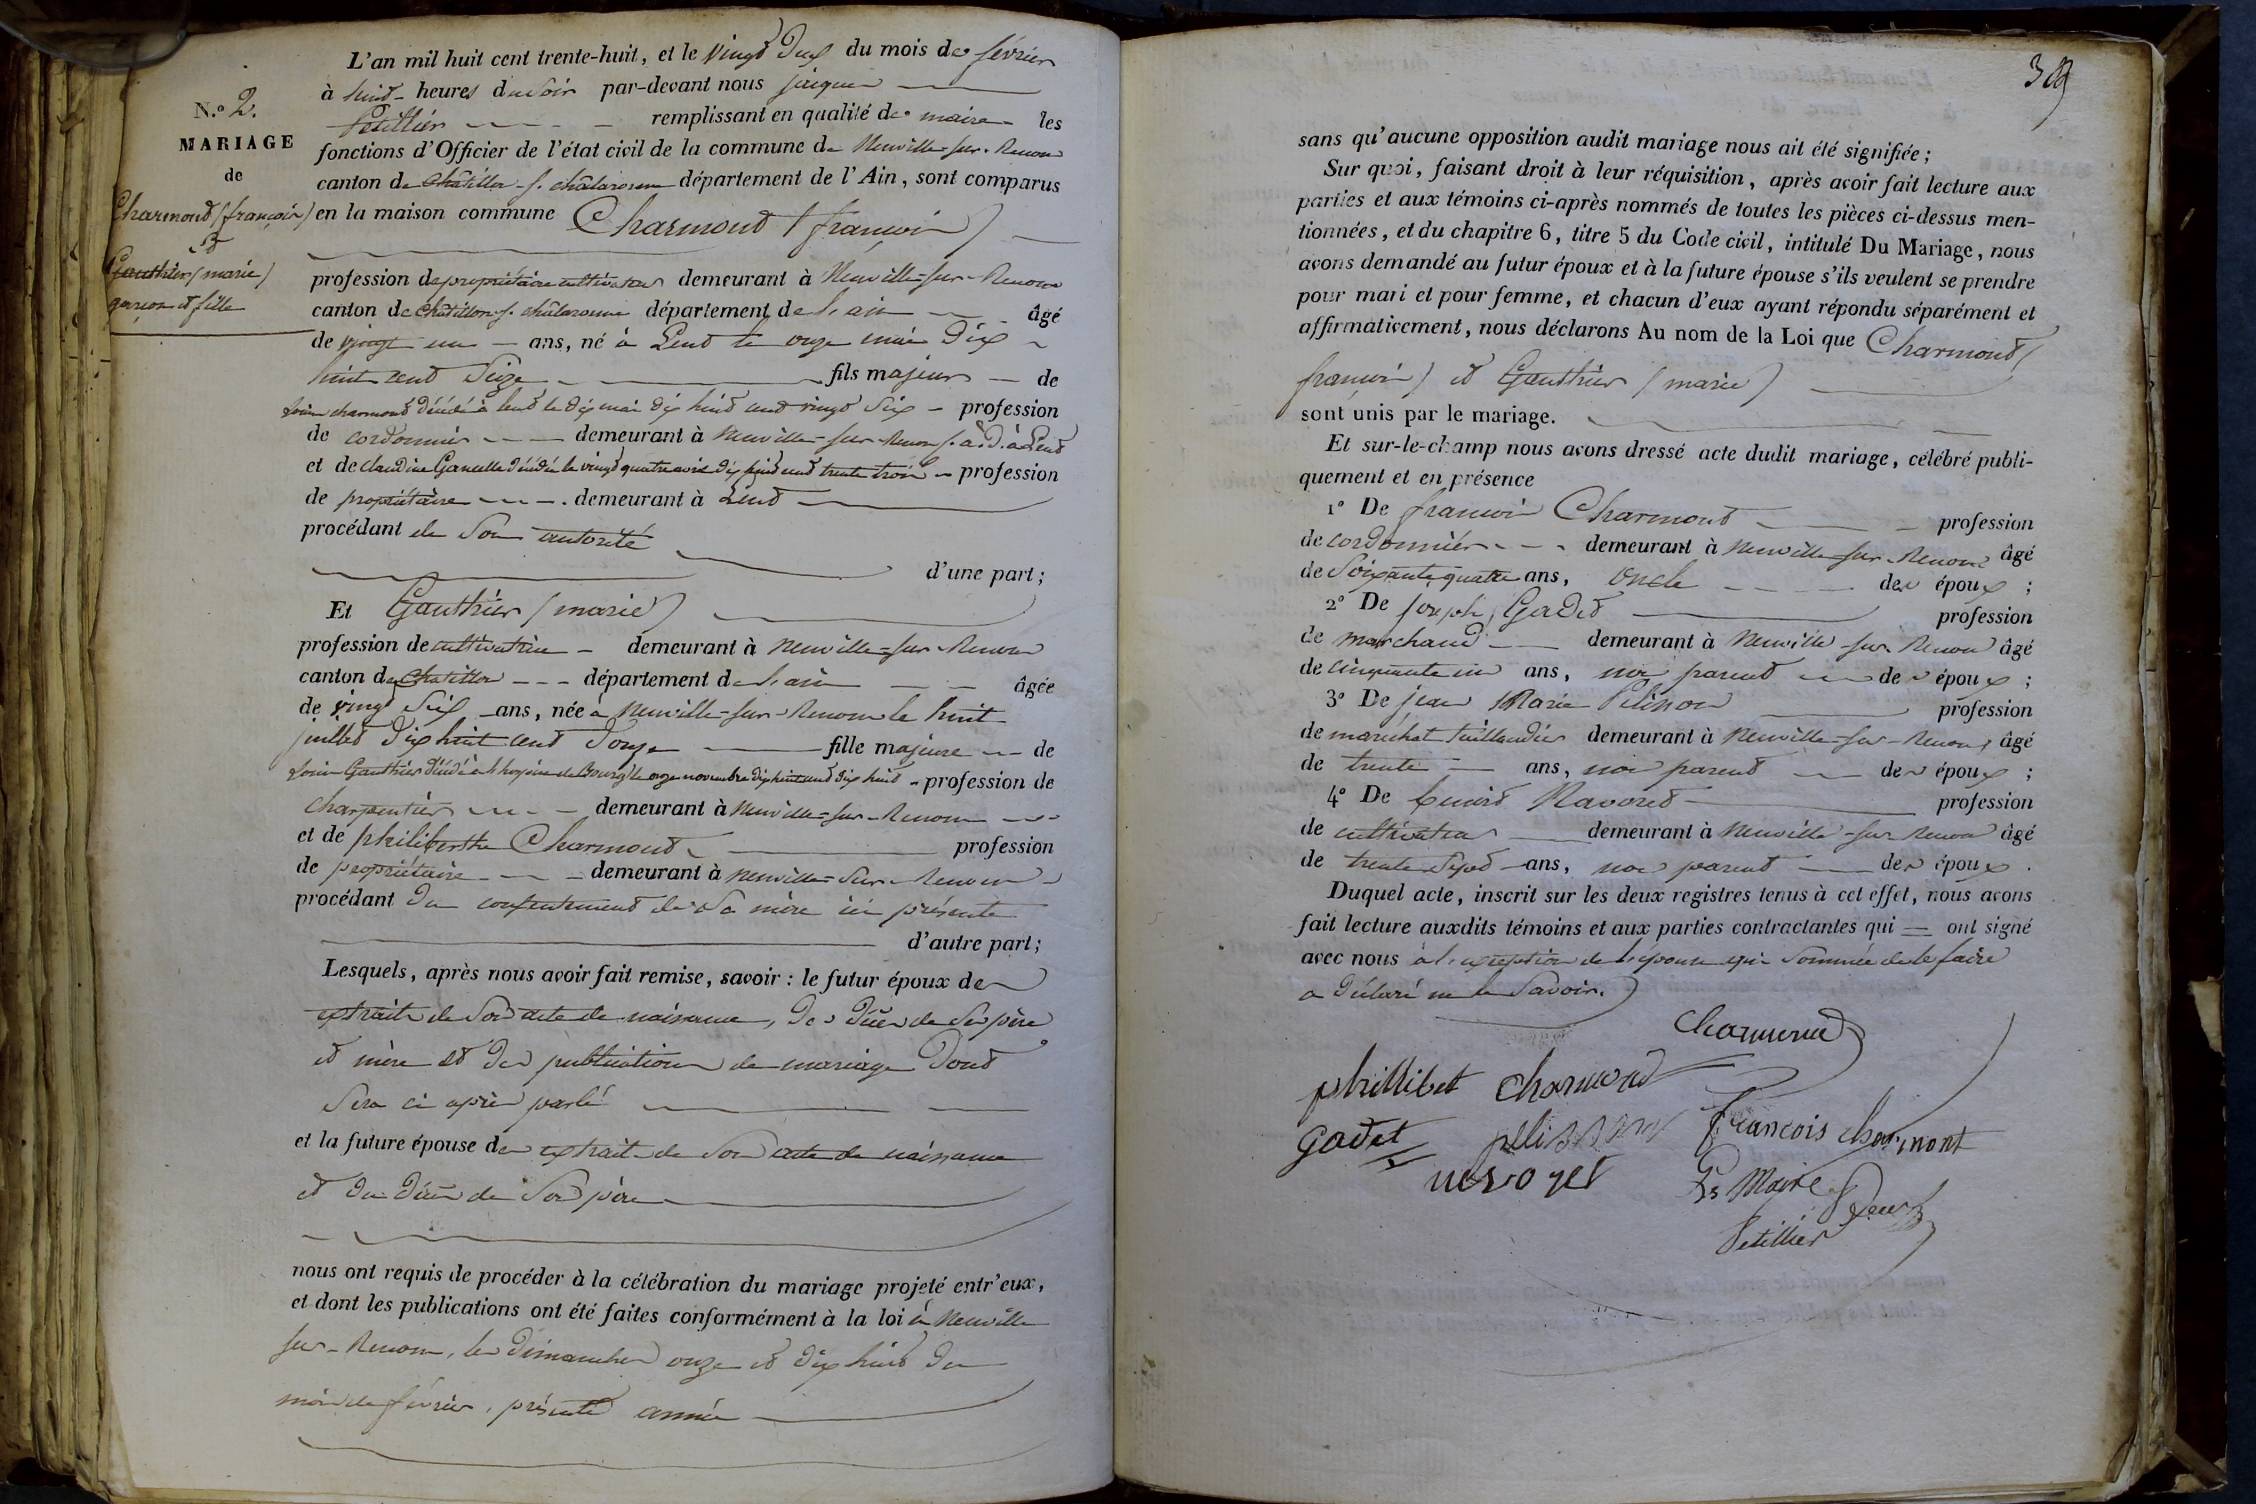 L'an mil huit cent trente-huit, et le vingt deux du mois de février
à huit heures du soir par-devant nous jacques
Petillier remplissant en qualité de maire les
fonctions d'Officier de l'état civil de la commune de Neuville-sur-Renom
canton de Châtillon-s. châlaronne département de l'Ain, sont comparus
en la maison commune Charmont (françois)
N.º 2.
MARIAGE
de
Charmont (françois)
et
Gauthier (marie)
garçon et fille
profession de propriétaire cultivateur demeurant à Neuville-sur-Renom
canton de Châtillon s. châlaronne département de l'ain âgé
de vingt un ans, né à Lent le onze mai dix
huit cent Seize fils majeur de
charmont décédé à lent le dix mai dix huit cent vingt Six profession
de cordonnier demeurant à Neuville-sur-Renom
et de claudine décédée le vingt quatre avril dix huit cent trente trois profession
de propriétaire demeurant à Lent
procédant de Son autorité
d'une part;
Et Gauthier (marie)
profession de cultivatrice demeurant à Neuville-sur-Renom
canton de Chatillon département de l'ain âgée
de vingt Six ans, née à Neuville-sur-Renom le huit
juillet dix huit cent douze fille majeure de
Gauthier décédé à l'hospice de Bourg le onze novembre dix huit cent dix huit profession de
charpentier demeurant à Neuville-sur-Renom
et de philiberthe Charmont profession
de propriétaire demeurant à Neuville-Sur-Renom
procédant du consentement de Sa mère ici présente
d'autre part;
Lesquels, après nous avoir fait remise, savoir : le futur époux de
extrait de Son acte de naissance, des décès de Ses père
et mère et des publications de mariage dont
Sera ci après parlé
et la future épouse de extrait de Son acte de naissance
et du décès de Son père
nous ont requis de procéder à la célébration du mariage projeté entr'eux,
et dont les publications ont été faites conformément à la loi à Neuville
sur-Renom, les dimanches onze et dix huit du
mois de février, présente année
sans qu'aucune opposition audit mariage nous ait été signifiée;
Sur quoi, faisant droit à leur réquisition, après avoir fait lecture aux
parties et aux témoins ci-après nommés de toutes les pièces ci-dessus men-
tionnées, et du chapitre 6, titre 5 du Code civil, intitulé Du Mariage, nous
avons demandé au futur époux et à la future épouse s'ils veulent se prendre
pour mari et pour femme, et chacun d'eux ayant répondu séparément et
affirmativement, nous déclarons Au nom de la Loi que Charmont (
françois) et Gauthier (marie)
sont unis par le mariage.
Et sur-le-champ nous avons dressé acte dudit mariage, célébré publi-
quement et en présence
1º De françois Charmont profession
de cordonnier demeurant à Neuville-sur-Renom âgé
de Soixante quatre ans, oncle des époux ;
2º De joseph Gadet profession
de marchand demeurant à Neuville-sur-Renom âgé
de cinquante un ans, non parent des époux ;
3º De jean Marie Pelisson profession
de maréchal taillandier demeurant à Neuville-sur-Renom âgé
de trente ans, non parent des époux ;
4º De profession
de cultivateur demeurant à Neuville-sur Renom âgé
de trente Sept ans, non parent des époux.
Duquel acte, inscrit sur les deux registres tenus à cet effet, nous avons
fait lecture auxdits témoins et aux parties contractantes qui ont signé
avec nous à l'exception de l'épouse qui Sommée de le faire
a déclaré ne le Savoir.
Charmond
phillibet charmond
gadet pelisson françois charmont
Maire
Petillier